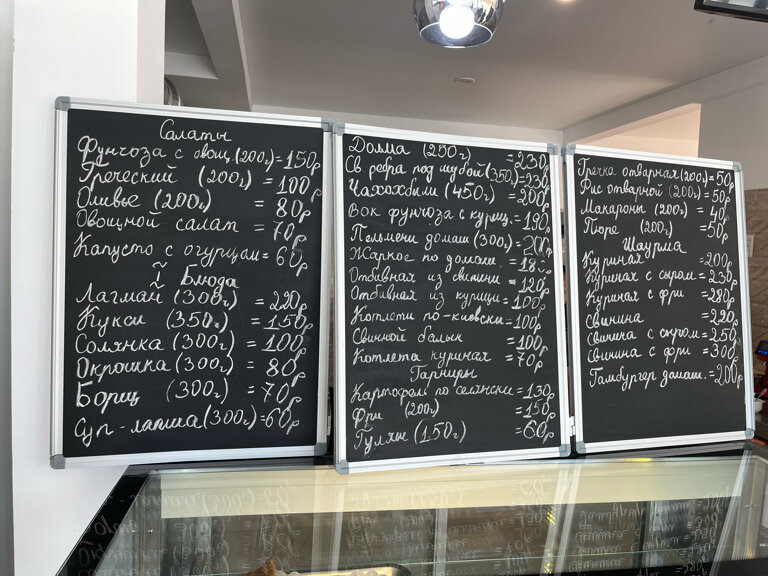 Салаты
Фунчоза с овощ.(200г)=150р
Греческий (200г) =100р
Оливье (200г) =80р
Овощной салат =70р
Капуста с огурцом=60р
I Блюда
Лагман (300г) =220р
Кукси (350г) =150р
Солянка (300г) =100р
Окрошка (300г) =80р
Борщ (300г) =70р
Суп-лапша (300г)=60р
Долма (250г) =230р
Св ребра под шубой(350г)=230р
Чахохбили (450г) =200р
Вок фунчоза с куриц.=190р
Пельмени домаш (300г)=200р
Жаркое по домаш. =180р
Отбивная из свинины =120р
Отбивная из курицы =100р
Котлети по-киевски =100р
Свинной балык =100р
Котлета куриная =70р
Гарниры
Картофель по селянски =130р
Фри (200г) =150р
Гуляш (150г) =60р
Гречка отварная(200г)=50р
Рис отварной (200г)=50р
Макароны (200г) =40р
Пюре (200г) =50р
Шаурма
Куриная =200р
Куриная с сыром =230р
Куриная с фри =280р
Свинина =220р
Свинина с сыром =250р
Свинина с фри =300р
Гамбургер домаш. =200р